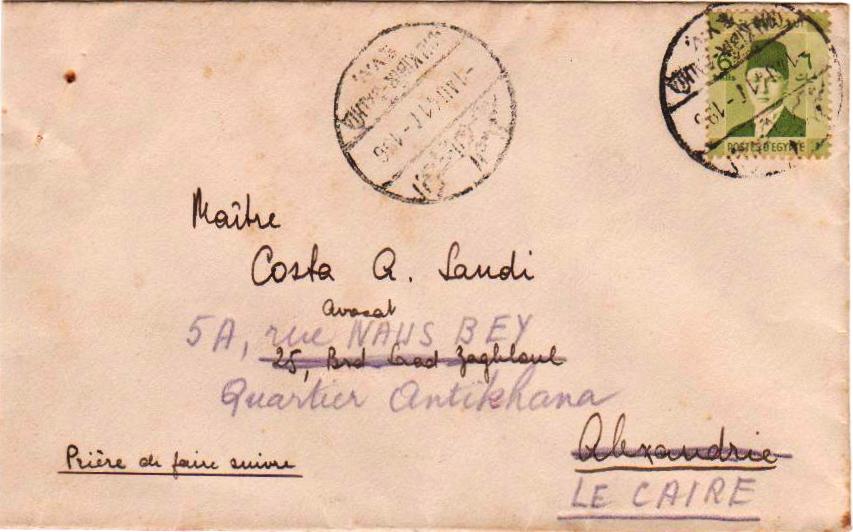 POSTES D'EGYPTE
Maître
Costa A. Sandi
Avocat
5A, rue NAHS BEY
25, Brd Saad Zaghloul
Quartier Antikhana
Alexandrie
LE CAIRE
Prière de faire suivre